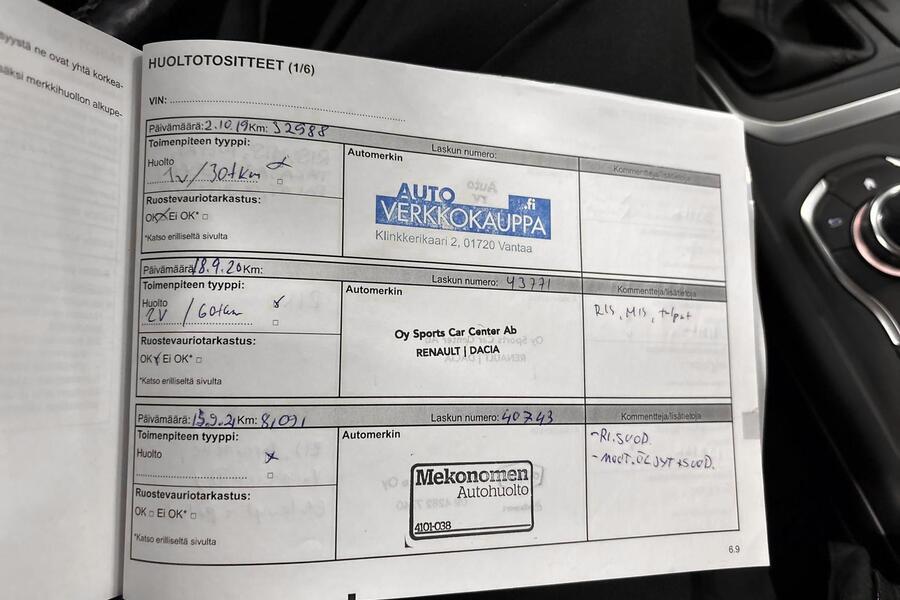 syystä ne ovat yhtä korkea-
säksi merkkihuollon alkupe-
HUOLTOTOSITTEET (1/6)
VIN:
Päivämäärä: 2.10.19 Km: 32588
Laskun numero:
Kommentteja/lisätietoja
Toimenpiteen tyyppi:
Huolto
1v/30tkm
Ruostevauriotarkastus:
OK Ei OK*
*Katso erilliseltä sivulta
Automerkin
AUTO
VERKKOKAUPPA.fi
Klinkkerikaari 2, 01720 Vantaa
Päivämäärä: 18.9.20 Km:
Laskun numero: 43771
Kommentteja/lisätietoja
Toimenpiteen tyyppi:
Huolto
2V / 60tkm
Ruostevauriotarkastus:
OK Ei OK*
*Katso erilliseltä sivulta
Automerkin
Oy Sports Car Center Ab
RENAULT | DACIA
RIS, MIS,
Päivämäärä: 15.9.21 Km: 81091
Laskun numero: 40743
Kommentteja/lisätietoja
Toimenpiteen tyyppi:
Huolto
Ruostevauriotarkastus:
OK Ei OK*
*Katso erilliseltä sivulta
Automerkin
Mekonomen
Autohuolto
4101-038
-RI.SUOD.
-MOOT.ÖLJYT+SUOD.
6.9